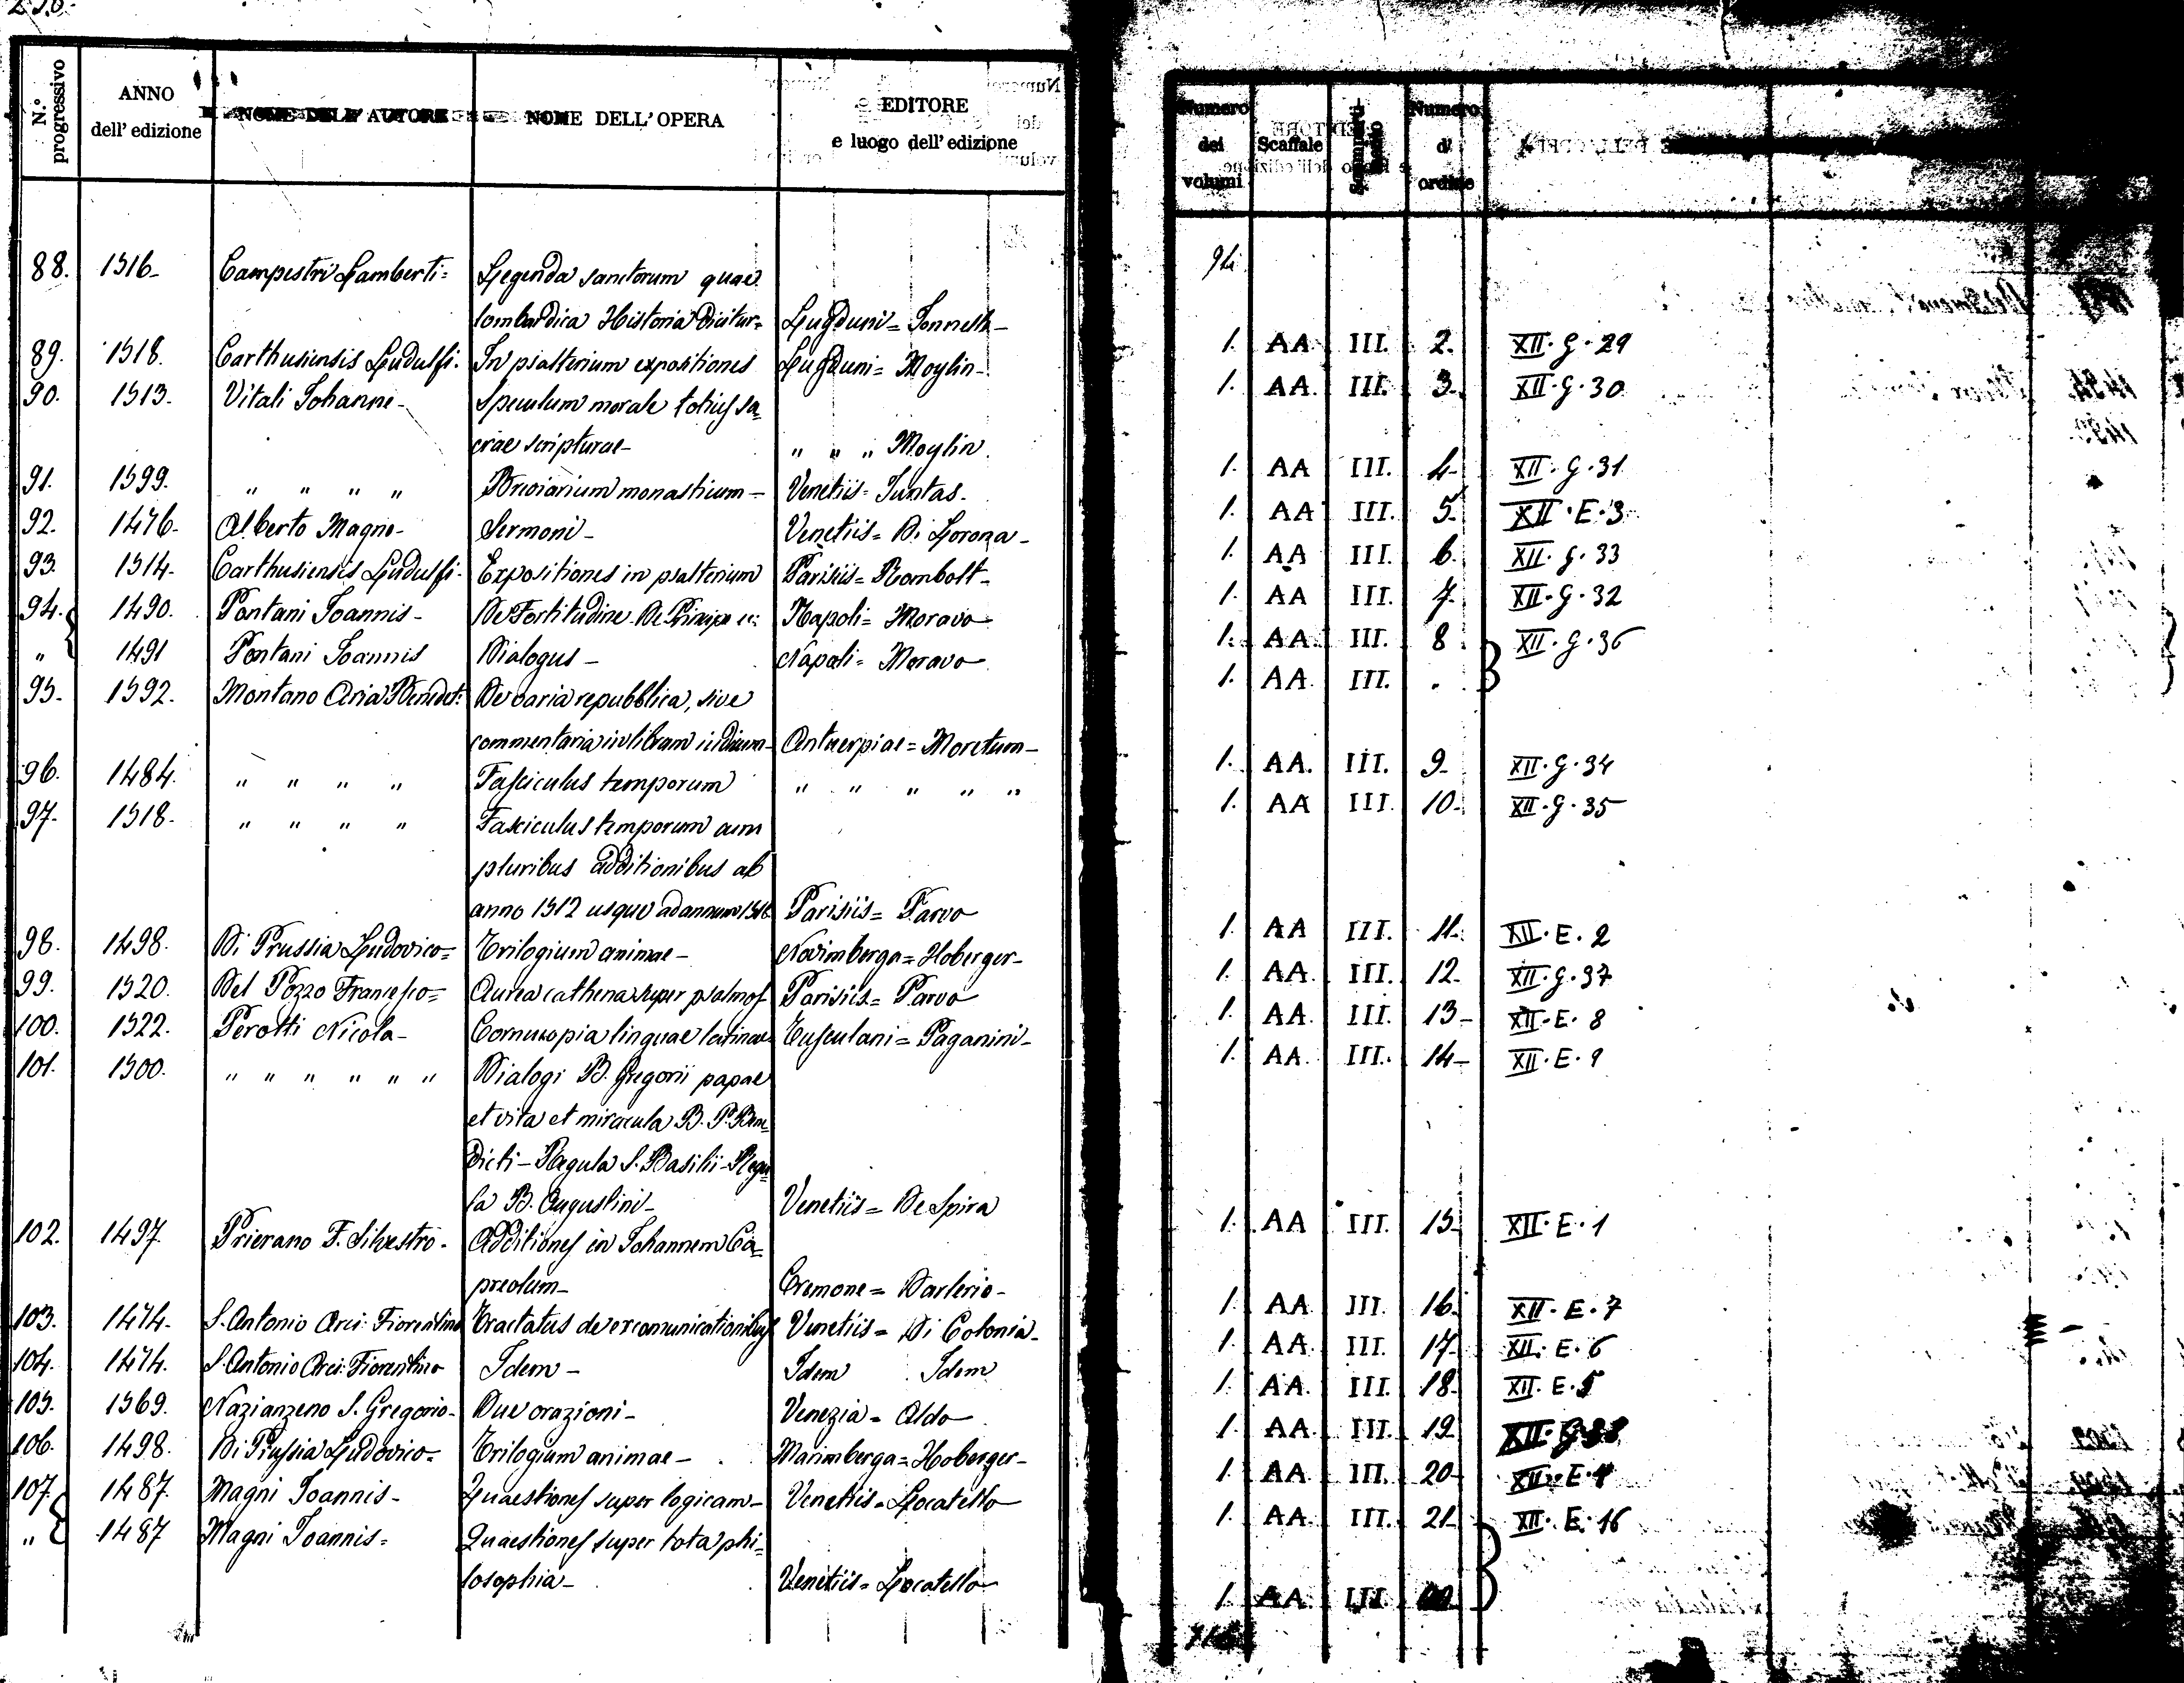 N.° progressivo | ANNO dell' edizione | NOME DELL' AUTORE | NOME DELL' OPERA | EDITORE e luogo dell' edizione | Numero dei volumi | Scaffale | | Numero d' ordine
94
88. 1516- Campestri Lamberti= Legenda sanctorum quae
lombardica Historia dicitur= Lugduni= 1. AA III. 2. XII. G. 29
89. 1518. Carthusiensis Ludulfi. In psalterium expositiones Lugduni= Moylin- 1. AA III. 3. XII. G. 30
90. 1513- Vitali Johanne- Speculum morale totius sa-
crae scripturae- " " " Moylin. 1. AA III. 4- XII. G. 31
91. 1599. " " " " Breviarium monasticum- Venetiis= Juntas. 1. AA III. 5. XII. E. 3
92. 1476- Alberto Magno- Sermoni- Venetiis= Di 1. AA III. 6. XII. G. 33
93. 1514- Carthusiensis Ludulfi- Expositiones in psalterium Parisiis= Rombolt- 1. AA III. 7. XII. G. 32
94. 1490. Pontani Joannis- De Fortitudine. De Principe Napoli= Moravo 1. AA III. 8. XII. G. 36
" 1491 Pontani Joannis Dialogus- Napoli= Moravo 1. AA III. .
95- 1592. Montano Aria Benedet: De varia repubblica, sive
commentaria in libram iudicum- Antuerpiae= Moretum- 1. AA. III. 9- XII. G. 34
96. 1484. " " " " Fasciculus temporum " " " " " 1. AA III. 10- XII. G. 35
97- 1518- " " " " Fasciculus temporum cum
pluribus additionibus ab
anno 1512 usque ad annum 1518 Parisiis= Parvo 1. AA III. 11- XII. E. 2
98. 1498. Di Prussia Ludovico= Trilogium animae- Norimberga= Hoberger- 1. AA. III. 12- XII. G. 37
99. 1520. Del Pozzo Francesco= Aurea cathena super psalmos Parisiis= Parvo 1. AA. III. 13- XII. E. 8
100. 1522. Perotti Nicola- Cornucopia linguae latinae Tusculani= Paganini- 1. AA. III. 14- XII. E. 9
101. 1500. " " " " " " Dialogi B. Gregorii papae
et vita et miracula B. P. Bene-
dicti- Regula S. Basilii- Regu-
la B. Augustini- Venetiis= De Spira 1. AA III. 15- XII. E. 1
102. 1497. Prierano F. Silvestro- Additiones in Johannem Ca-
preolum- Cremone= Darlerio- 1. AA III. 16. XII. E. 7
103. 1474- S. Antonio Arci: Fiorentino Tractatus de excomunicationibus Venetiis= Di Colonia- 1. AA III. 17- XII. E. 6
104. 1474. S. Antonio Arci: Fiorentino Idem- Idem Idem 1. AA. III. 18- XII. E. 5
105. 1569. Nazianzeno S. Gregorio- Due orazioni- Venezia= Aldo 1. AA. III. 19. XII. G. 38
106. 1498. Di Prussia Ludovico= Trilogium animae- Marimberga= Hoberger- 1. AA III. 20- XII. E. 4
107. 1487. Magni Joannis- Quaestiones super logicam- Venetiis= Locatello 1. AA. III. 21- XII. E. 16
" 1487 Magni Joannis= Quaestiones super tota phi-
losophia- Venetiis= Locatello 1. AA III.